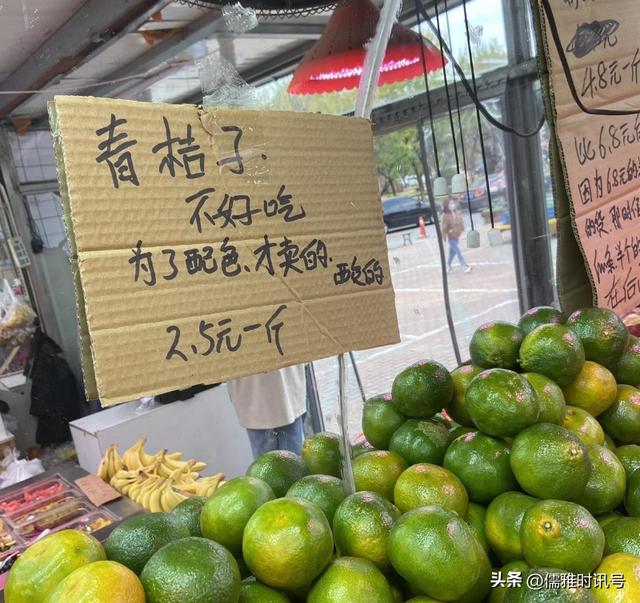 青桔子.
不好吃
为了配色、才卖的.
2.5元一斤
4.8元一斤
比6.8元
因为6.8元的
头条 @儒雅时讯号